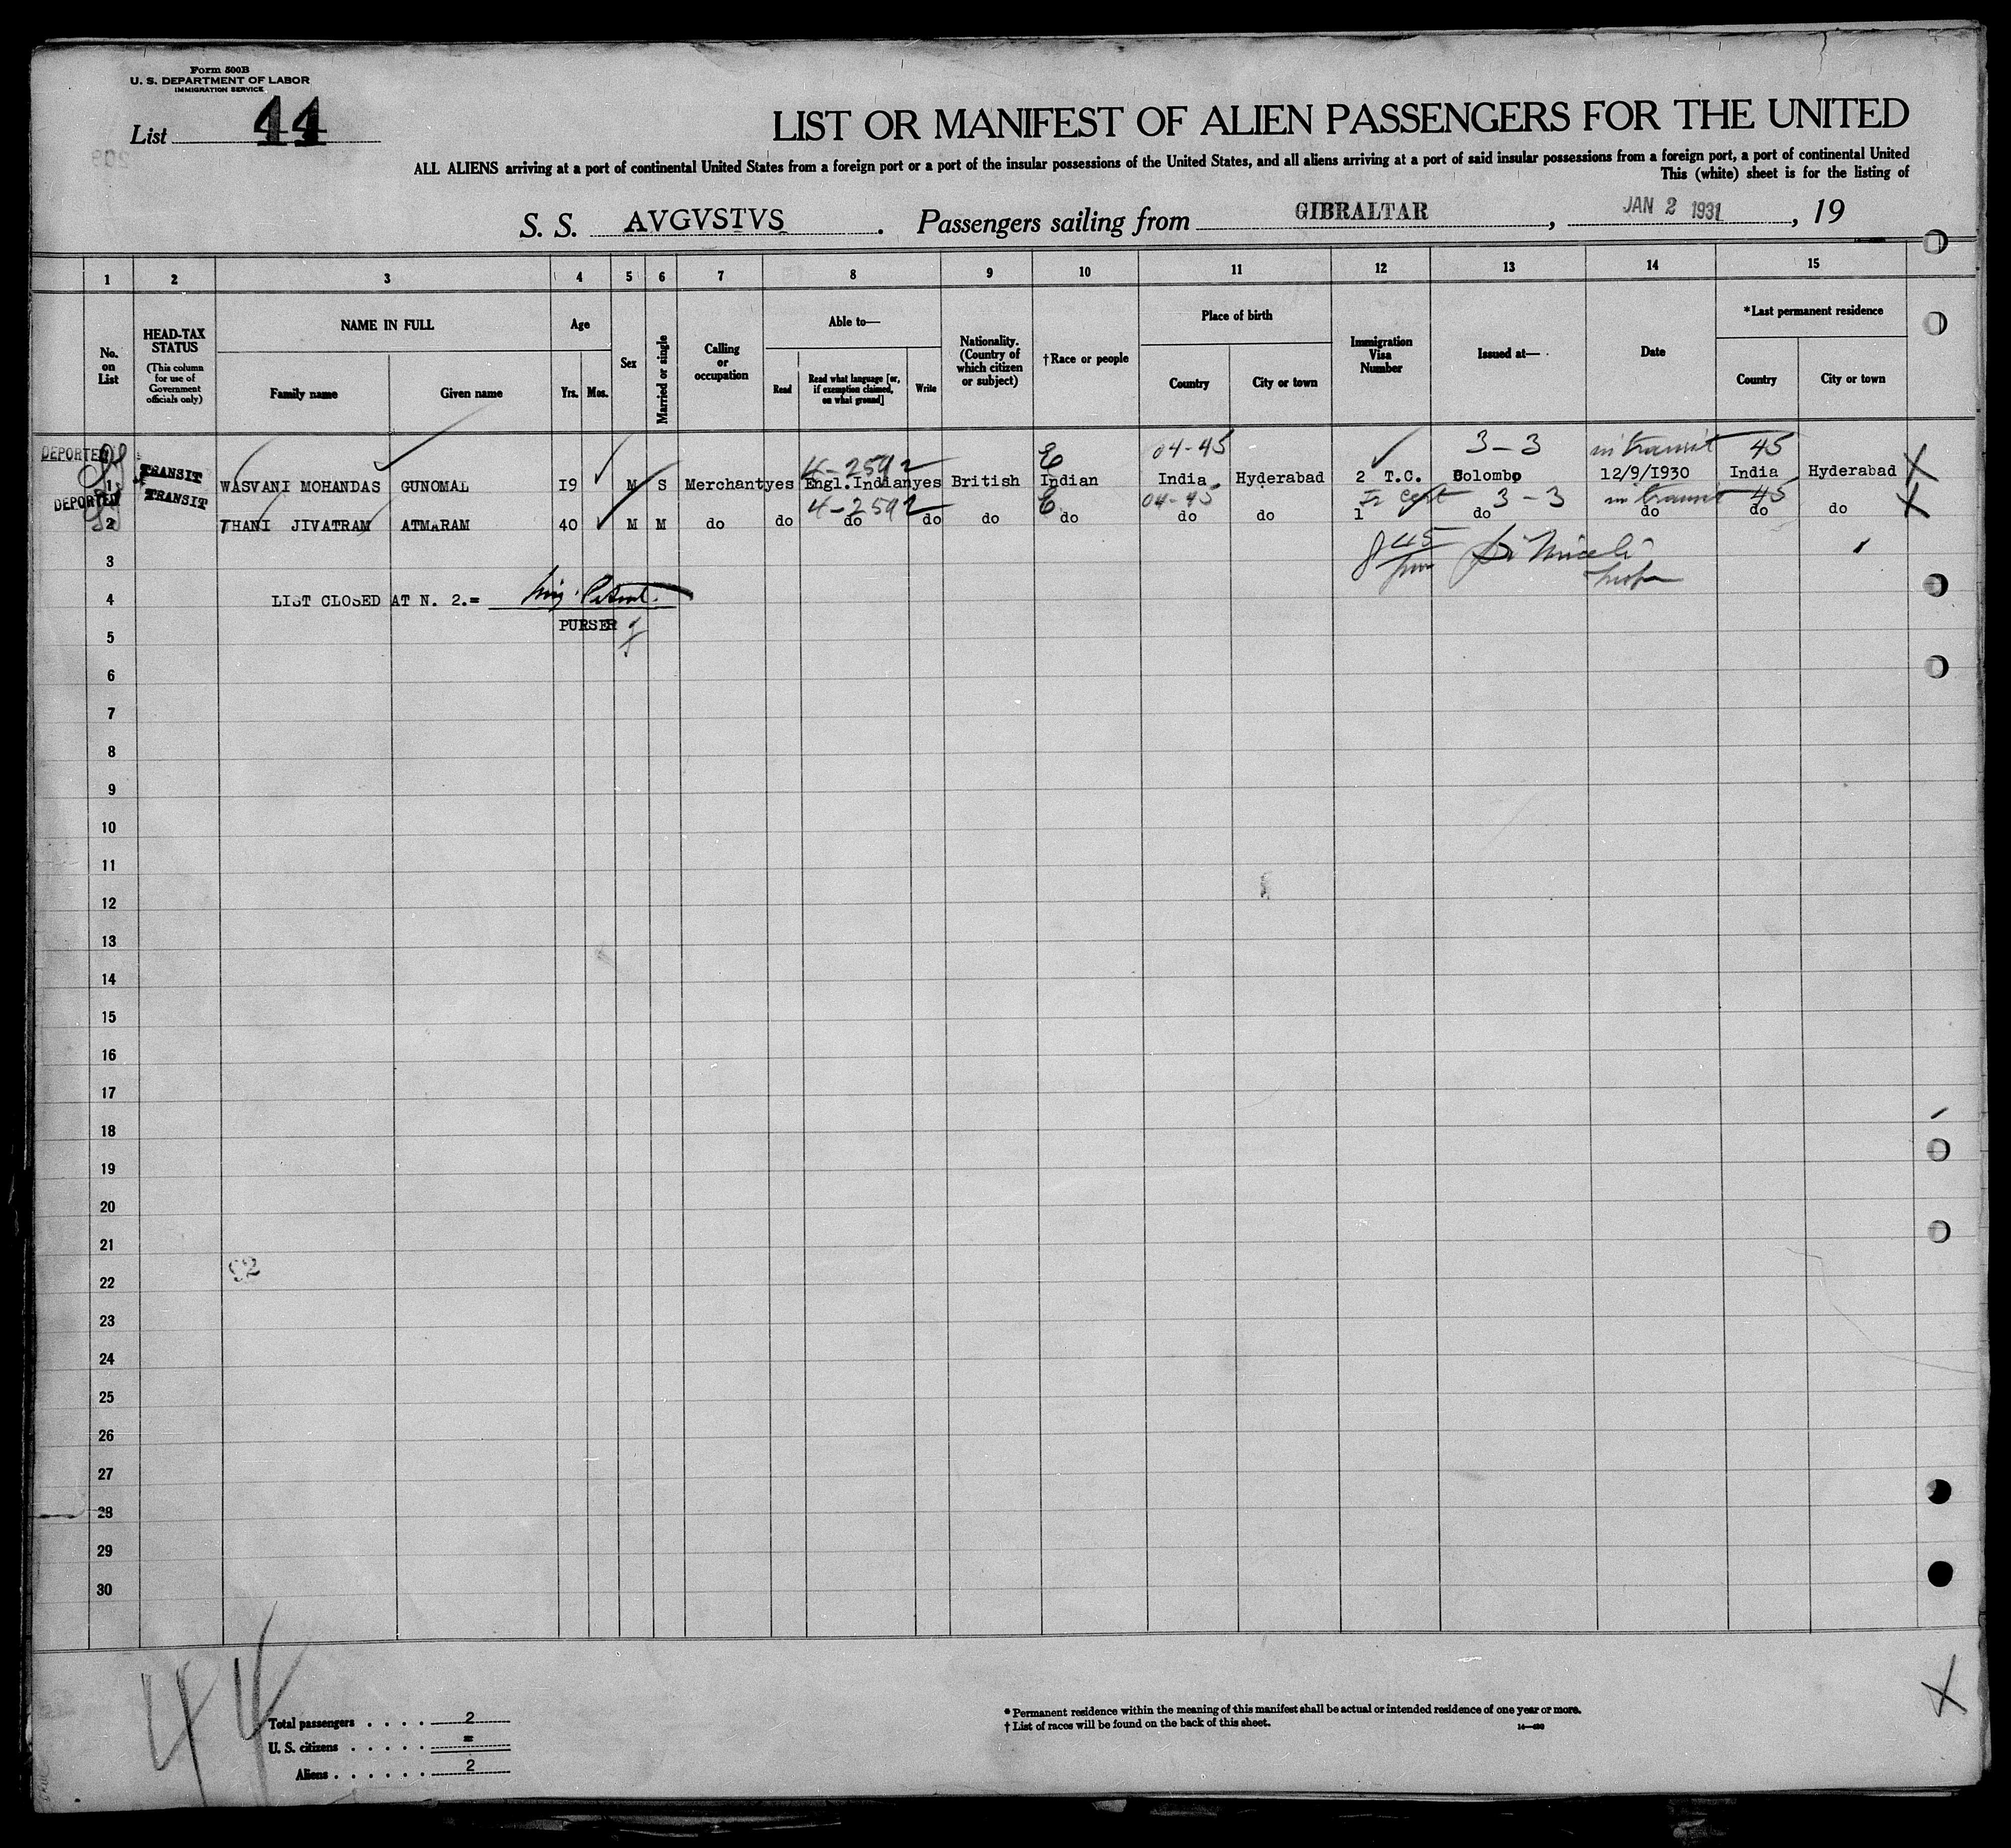 Form 500B
U. S. DEPARTMENT OF LABOR
IMMIGRATION SERVICE
List 44
LIST OR MANIFEST OF ALIEN PASSENGERS FOR THE UNITED
ALL ALIENS arriving at a port of continental United States from a foreign port or a port of the insular possessions of the United States, and all aliens arriving at a port of said insular possessions from a foreign port, a port of continental United
This (white) sheet is for the listing of
S. S. AVGVSTVS. Passengers sailing from GIBRALTAR, JAN 2 1931, 19
1 2 3 4 5 6 7 8 9 10 11 12 13 14 15
No. on List
HEAD-TAX STATUS
(This column for use of Government officials only)
NAME IN FULL
Family name Given name
Age
Yrs. Mos.
Sex
Married or single
Calling or occupation
Able to—
Read
Read what language [or, if exemption claimed, on what ground]
Write
Nationality. (Country of which citizen or subject)
†Race or people
Place of birth
Country City or town
Immigration Visa Number
Issued at—
Date
*Last permanent residence
Country City or town
DEPORTED 4-2592 E 04-45 3-3 in transit 45
1 TRANSIT WASVANI MOHANDAS GUNOMAL 19 M S Merchant yes Engl.Indian yes British Indian India Hyderabad 2 T.C. Colombo 12/9/1930 India Hyderabad X
DEPORTED 4-2592 E 04-45 3-3 in transit 45
2 TRANSIT THANI JIVATRAM ATMARAM 40 M M do do do do do do do do 1 do do do do X
3
4 LIST CLOSED AT N. 2.=
PURSER
5
6
7
8
9
10
11
12
13
14
15
16
17
18
19
20
21
22
23
24
25
26
27
28
29
30
44
Total passengers . . . . 2
U. S. citizens . . . . . =
Aliens . . . . . . 2
* Permanent residence within the meaning of this manifest shall be actual or intended residence of one year or more.
† List of races will be found on the back of this sheet.
X